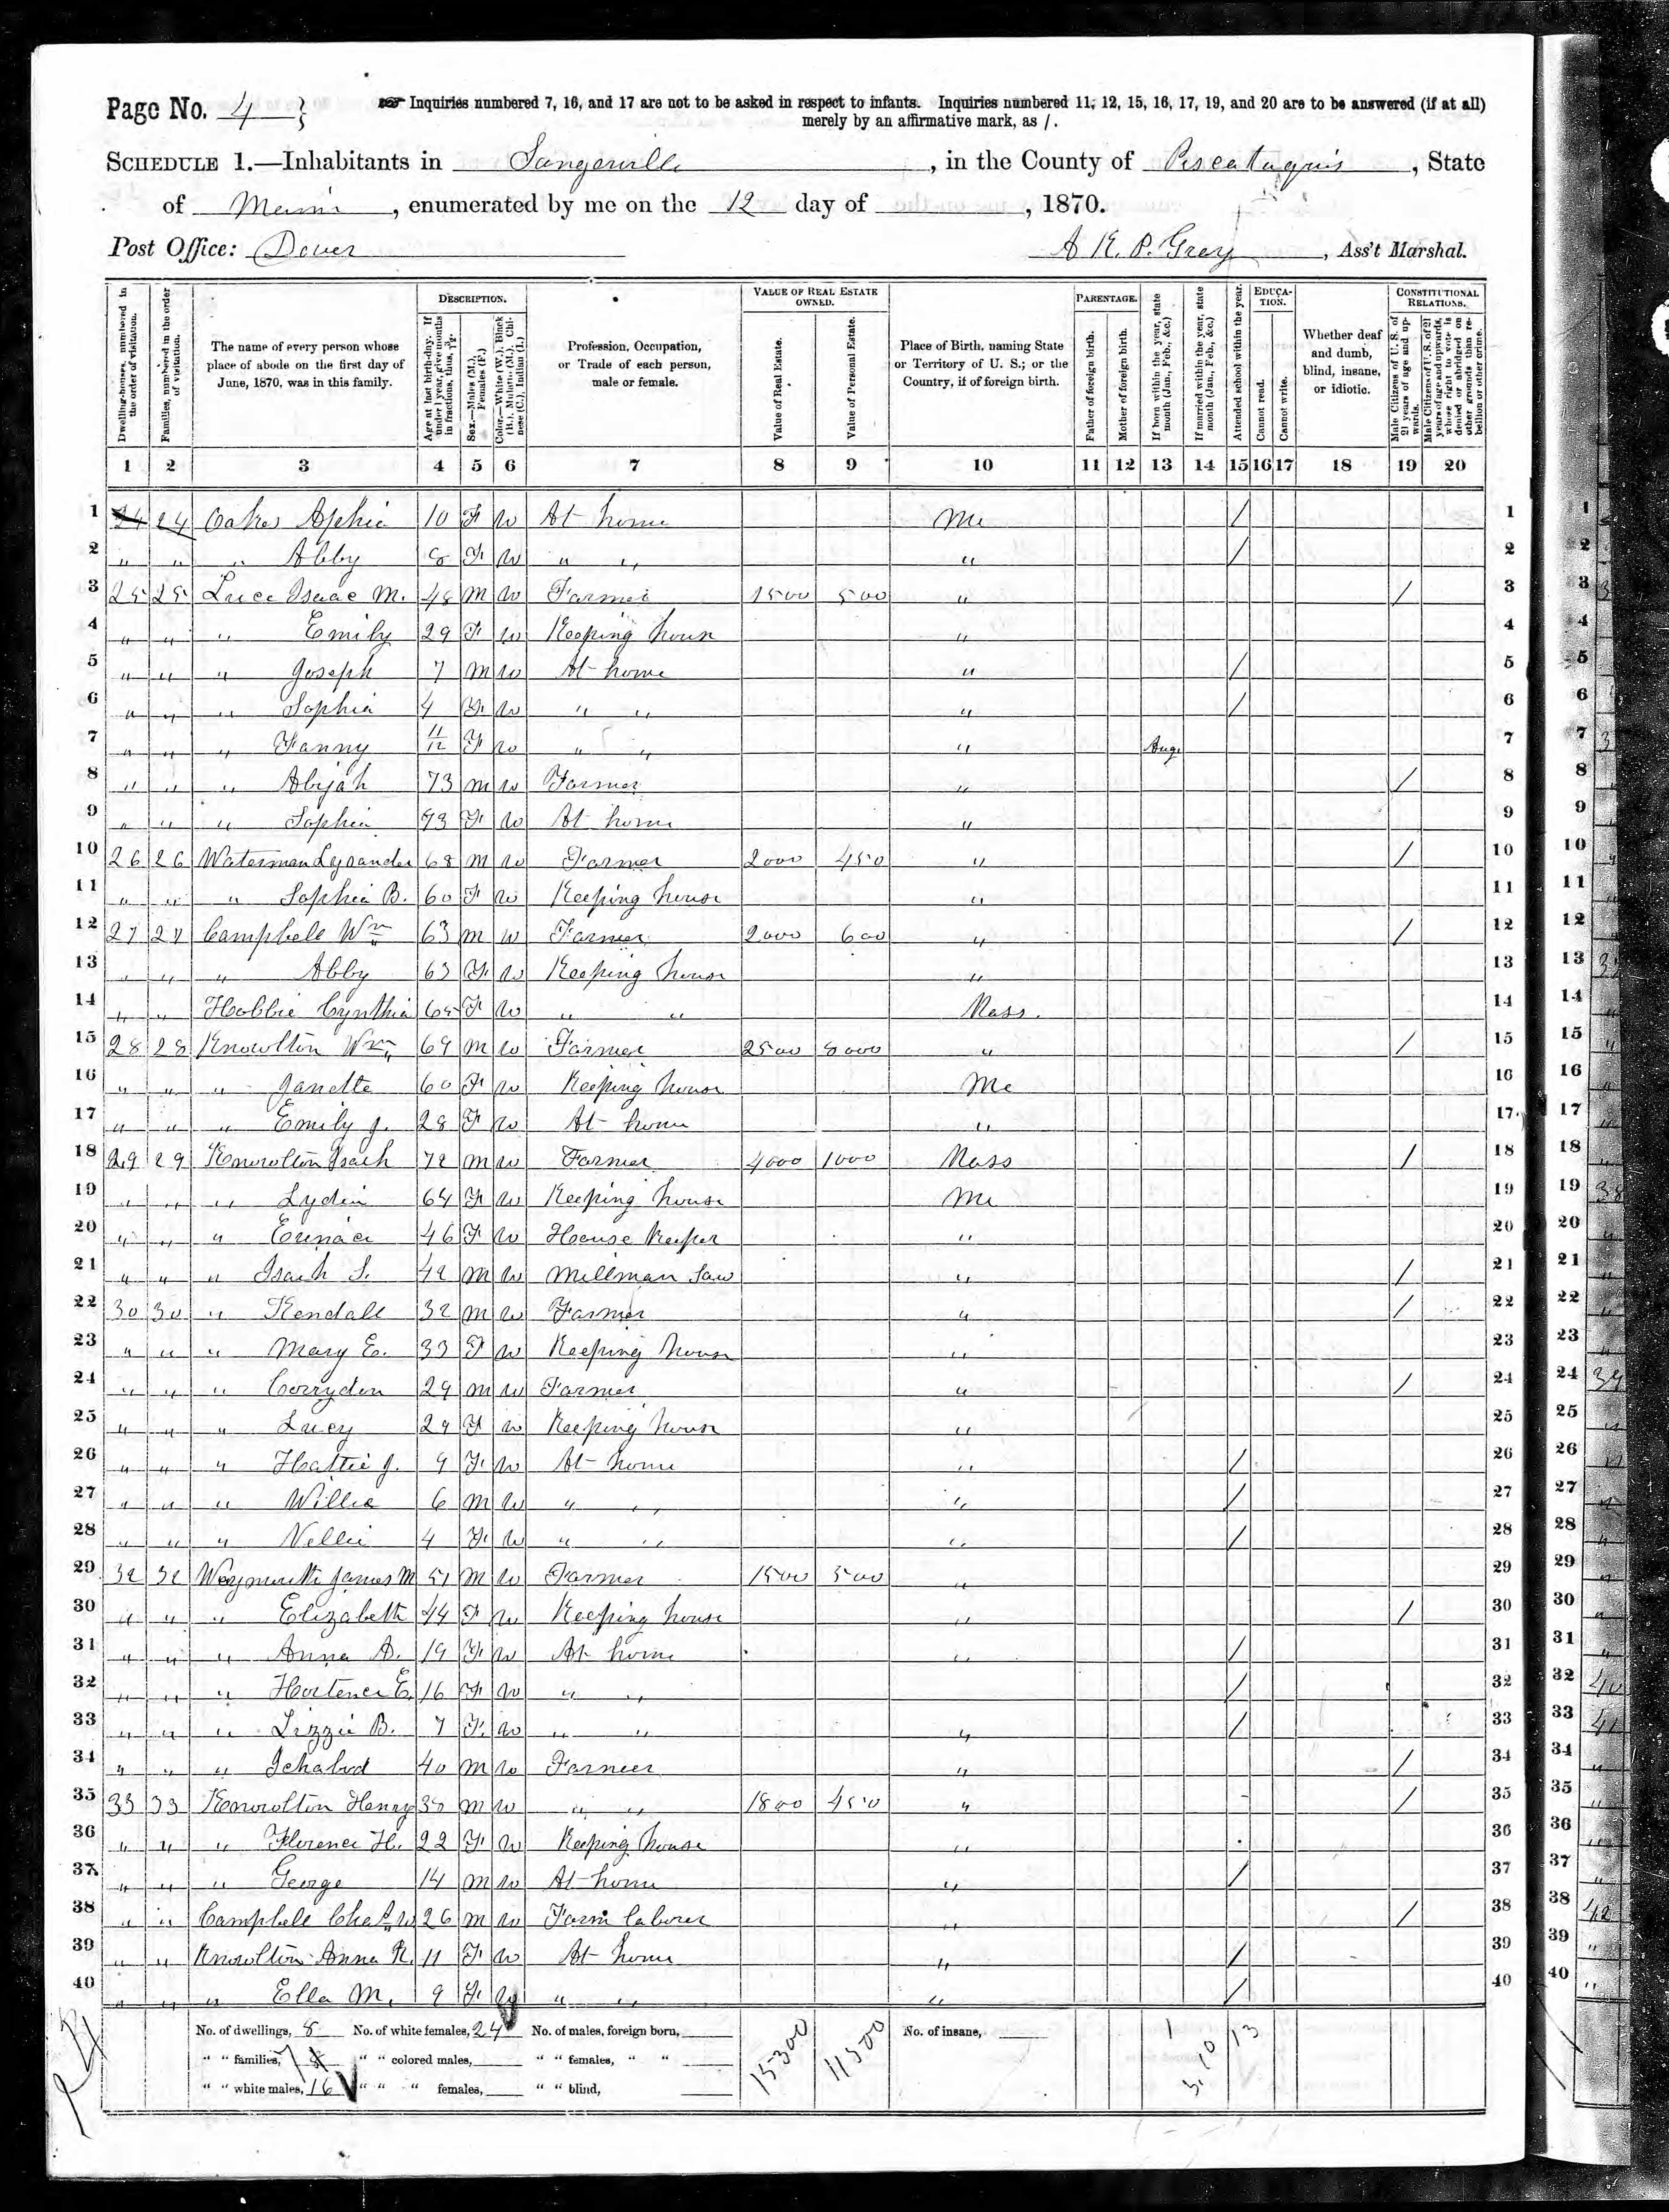 Page No. 4
Inquiries numbered 7, 16, and 17 are not to be asked in respect to infants. Inquiries numbered 11, 12, 15, 16, 17, 19, and 20 are to be answered (if at all)
merely by an affirmative mark, as /.
SCHEDULE 1.—Inhabitants in Sangerville, in the County of Piscataquis, State
of Maine, enumerated by me on the 12 day of , 1870.
Post Office: Dover A K. P. Gray, Ass't Marshal.
Dwelling-houses, numbered in the order of visitation.
Families, numbered in the order of visitation.
The name of every person whose place of abode on the first day of June, 1870, was in this family.
DESCRIPTION.
Age at last birth-day. If under 1 year, give months in fractions, thus, 3/12.
Sex.—Males (M.), Females (F.)
Color.—White (W.), Black (B.), Mulatto (M.), Chinese (C.), Indian (I.)
Profession, Occupation, or Trade of each person, male or female.
VALUE OF REAL ESTATE OWNED.
Value of Real Estate.
Value of Personal Estate.
Place of Birth, naming State or Territory of U. S.; or the Country, if of foreign birth.
PARENTAGE.
Father of foreign birth.
Mother of foreign birth.
If born within the year, state month (Jan., Feb., &c.)
If married within the year, state month (Jan., Feb., &c.)
Attended school within the year.
EDUCATION.
Cannot read.
Cannot write.
Whether deaf and dumb, blind, insane, or idiotic.
CONSTITUTIONAL RELATIONS.
Male Citizens of U. S. of 21 years of age and upwards.
Male Citizens of U. S. of 21 years of age and upwards, whose right to vote is denied or abridged on other grounds than rebellion or other crime.
1 2 3 4 5 6 7 8 9 10 11 12 13 14 15 16 17 18 19 20
1 24 24 Oakes Aphia 10 F W At home Me / 1
2 " " " Abby 8 F W " " " / 2
3 25 25 Luce Isaac M. 48 M W Farmer 1500 500 " / 3
4 " " " Emily 29 F W Keeping house " 4
5 " " " Joseph 7 M W At home " / 5
6 " " " Sophia 4 F W " " " / 6
7 " " " Fanny 11/12 F W " " " Aug. 7
8 " " " Abijah 73 M W Farmer " / 8
9 " " " Sophia 73 F W At home " 9
10 26 26 Waterman Lysander 68 M W Farmer 2000 450 " / 10
11 " " " Sophia B. 60 F W Keeping house " 11
12 27 27 Campbell Wm 63 M W Farmer 2000 600 " / 12
13 " " " Abby 63 F W Keeping house " 13
14 " " Cynthia 65 F W " " Mass. 14
15 28 28 Knowlton Wm 69 M W Farmer 2500 8000 " / 15
16 " " " Janette 60 F W Keeping house Me 16
17 " " " Emily J. 28 F W At home " 17
18 29 29 Knowlton Isach 72 M W Farmer 4000 1000 Mass / 18
19 " " " Lydia 64 F W Keeping house Me 19
20 " " " 46 F W House Keeper " 20
21 " " " Isach S. 42 M W Millman Saw " / 21
22 30 30 " Kendall 32 M W Farmer " / 22
23 " " " Mary E. 33 F W Keeping house " 23
24 " " " Corrydon 29 M W Farmer " / 24
25 " " " Lucy 29 F W Keeping house " 25
26 " " " Hattie J. 9 F W At home " / 26
27 " " " Willie 6 M W " " " / 27
28 " " " Nellie 4 F W " " " / 28
29 32 32 Weymouth James M 51 M W Farmer 1500 500 " 29
30 " " " Elizabeth 44 F W Keeping house " / 30
31 " " " Anna A. 19 F W At home " / 31
32 " " " Hortence E. 16 F W " " / 32
33 " " " Lizzie B. 7 F W " " " / 33
34 " " " Ichabod 40 M W Farmer " / 34
35 33 33 Knowlton Henry 30 M W " " 1800 450 " / 35
36 " " " Florence H. 22 F W Keeping house " 36
37 " " " George 14 M W At home " / 37
38 " " Campbell Chas. W 26 M W Farm laborer " / 38
39 " " Knowlton Anna R. 11 F W At home " / 39
40 " " " Ella M. 9 F W " " " / 40
No. of dwellings, 8 No. of white females, 24 No. of males, foreign born, 15300 11500 No. of insane, 1 13
" " families, 8 " " colored males, " " females, " " 10
" " white males, 16 " " " females, " " blind,